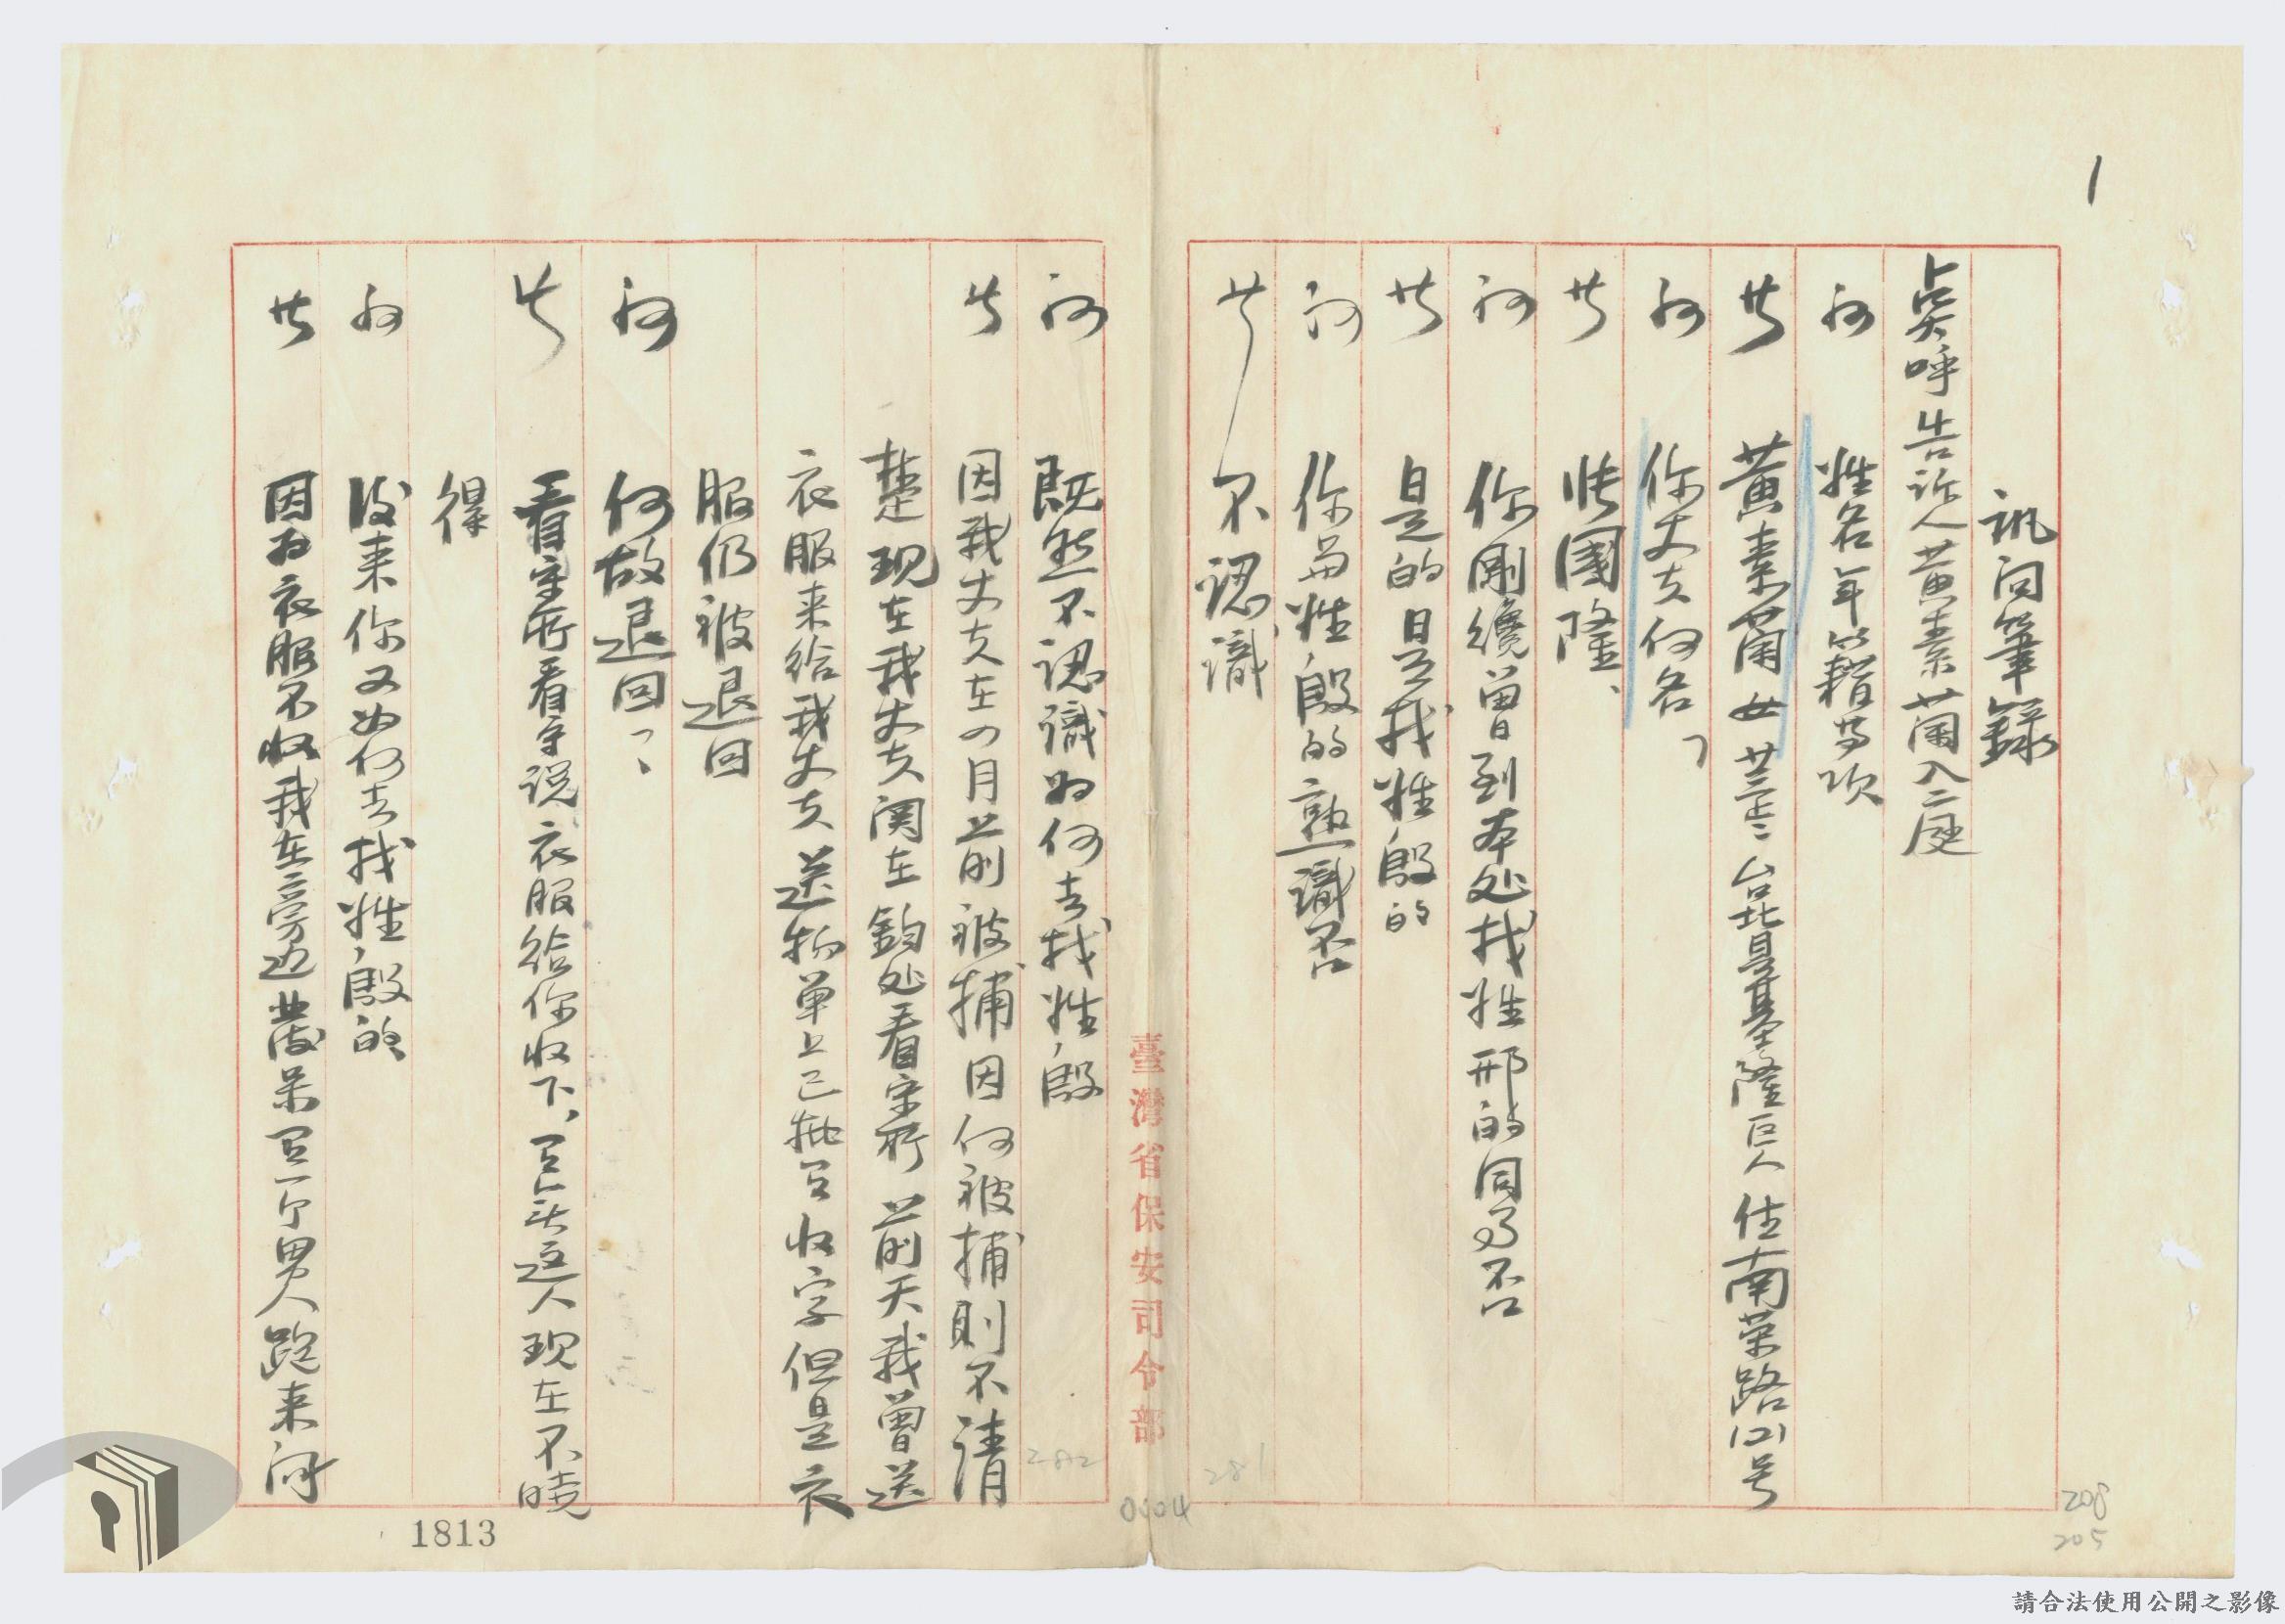 1
訊问筆録
点呼告訴人黄素蘭入庭
问 姓名年籍等项
答 黄素蘭女 台北县基隆 人 住南荣路121号
问 你丈夫何名？
答 张國隆、
问 你剛纔曾到本处找姓邢的同志否
答 是的是我找姓殷的
问 你与姓殷的熟識否
答 不認識
问 既然不認識如何去找姓殷
答 因我丈夫在四月前被捕因何被捕則不清
楚现在我丈夫関在鈞处看守所前天我曾送
衣服来给我丈夫送物单上已批可收字但是衣
服仍被退回
问 何故退回？
答 看守所看守说衣服给你收下、可 这人现在不曉
得
问 後来你又如何去找姓殷的
答 因为衣服不收我在旁边发呆 一个男人跑来问
臺灣省保安司令部
282
281
0004
208
205
1813
請合法使用公開之影像